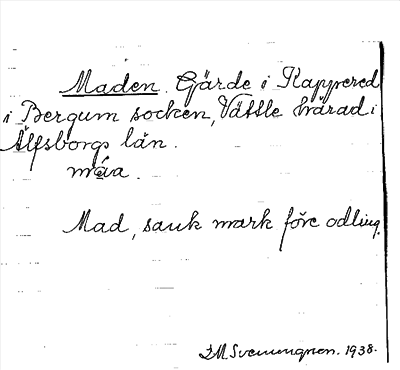 Maden. Gärde i Kappered
i Bergum socken, Vättle härad i
Älfsborgs län.
måa.
Mad, sank mark före odling.
J M Svenungsen. 1938.